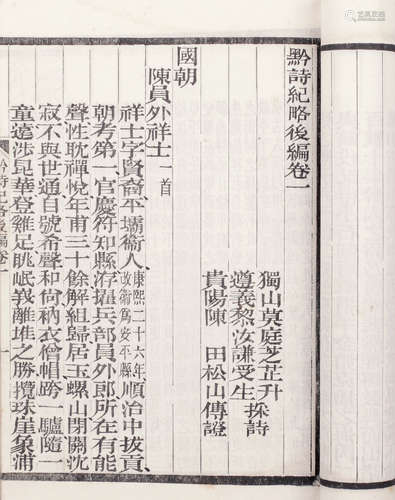 黔詩紀略後編卷一
獨山莫庭芝芷升
遵義黎汝謙受生 採詩
貴陽陳 田松山傳證
國朝
陳員外祥士一首
祥士字賢裔平壩衞人康熙二十六年改衞爲安平縣順治中拔貢
朝考第一官慶符知縣洊擢兵部員外郎所在有能
聲性耽禪悅年甫三十餘解組歸居玉螺山閉關沈
寂不與世通自號希聲和尚衲衣僧帽跨一驢隨一
童遠涉昆華登雞足眺岷義離堆之勝攬珠崖象浦
黔詩紀略後編卷一
一